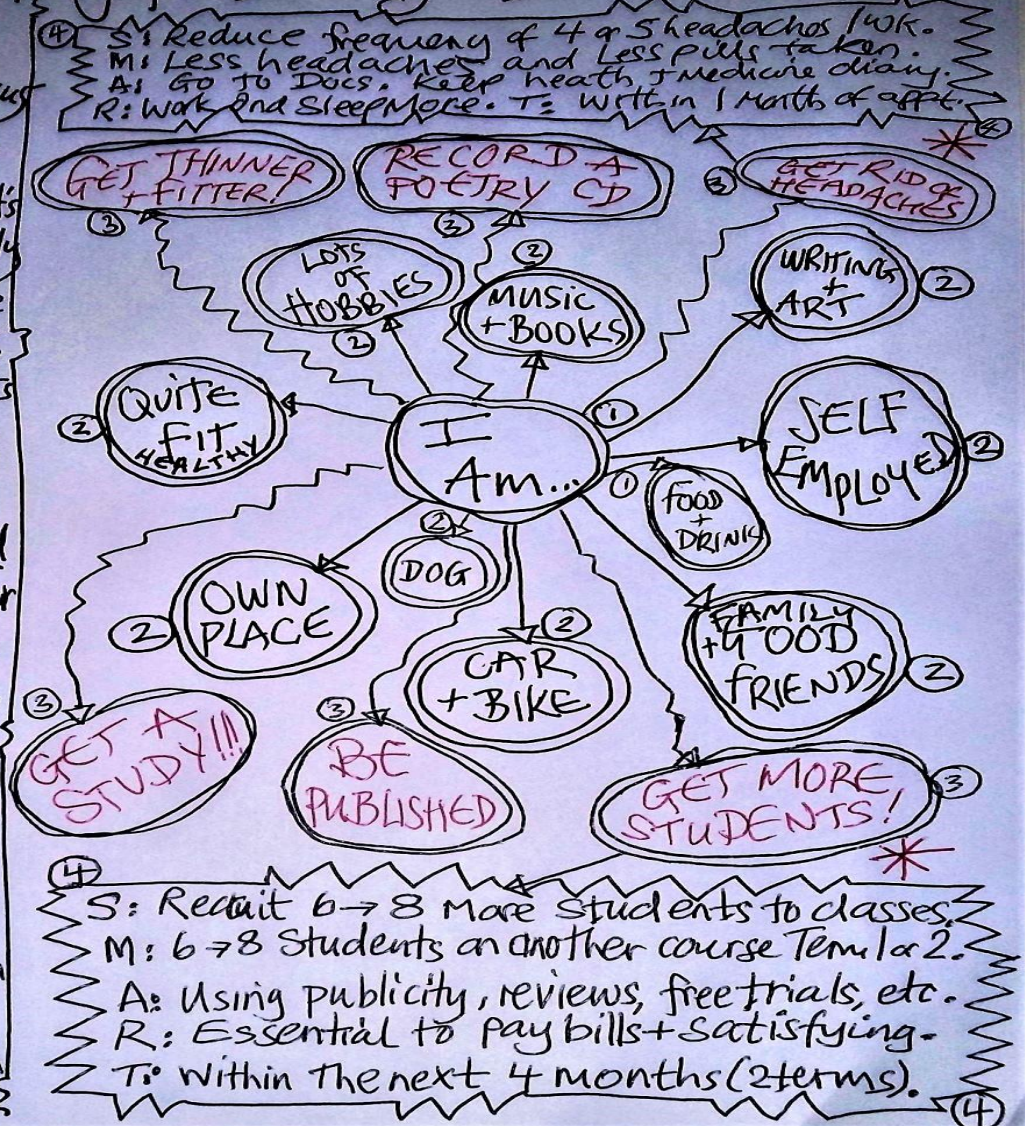 ④ S: Reduce frequency of 4 or 5 headaches/wk.
M: Less headaches and Less pills taken.
A: Go To Docs. Keep heath + Medicine diary.
R: Work and Sleep More. T: Within 1 Month of appt.
④
GET THINNER
+ FITTER!
③
RECORD A
POETRY CD
③
GET RID OF
HEADACHES
③
LOTS
OF
HOBBIES
②
②
MUSIC
+ BOOKS
WRITING
+
ART
②
QUITE
FIT
HEALTHY
②
I
Am...
①
①
SELF
EMPLOYED
②
FOOD
+
DRINK
②
DOG
OWN
PLACE
②
②
CAR
+ BIKE
FAMILY
+ GOOD
FRIENDS
②
③
GET A
STUDY!!!
③
BE
PUBLISHED
GET MORE
STUDENTS!
③
④
S: Recruit 6→8 More Students to classes.
M: 6→8 Students on another course Term 1 or 2.
A: Using publicity, reviews, free trials, etc.
R: Essential to pay bills + Satisfying.
T: Within The next 4 months (2 terms).
④